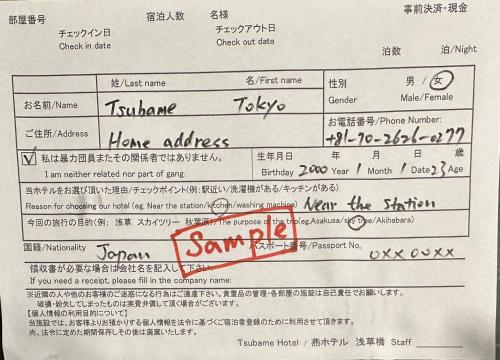 部屋番号 宿泊人数 名様 事前決済・現金
チェックイン日 チェックアウト日
Check in date Check out date 泊数 泊/Night
姓/Last name 名/First name 性別 男 / 女
お名前/Name Tsubame Tokyo Gender Male/Female
ご住所/Address Home address お電話番号/Phone Number:
+81-70-2626-0277
私は暴力団員またその関係者ではありません。 生年月日 年 月 日 歳
I am neither related nor part of gang. Birthday 2000 Year 1 Month 1 Date 23 Age
当ホテルをお選び頂いた理由/チェックポイント(例: 駅近い/洗濯機がある/キッチンがある)
Reason for choosing our hotel (eg. Near the station/kitchen/washing machine) Near the station
今回の旅行の目的(例: 浅草 スカイツリー 秋葉原) The purpose of the trip(eg.Asakusa/sky tree/Akihabara)
Sample
国籍/Nationality Japan パスポート番号/Passport No. 0××00××
領収書が必要な場合は会社名を記入して下さい。
If you need a receipt, please fill in the company name:
※近隣の人や他のお客様のご迷惑になる行為はご遠慮下さい。貴重品の管理・各部屋の施錠は自己責任でお願いします。
破損・紛失してしまったものは実費弁償して頂く場合がございます。
【個人情報の利用目的について】
当施設では、お客様よりお預かりする個人情報を法令に基づくご宿泊者登録のために利用させて頂きます。
尚、法令に定めた期間保存しその後は廃棄いたします。
Tsubame Hotel / 燕ホテル 浅草橋 Staff